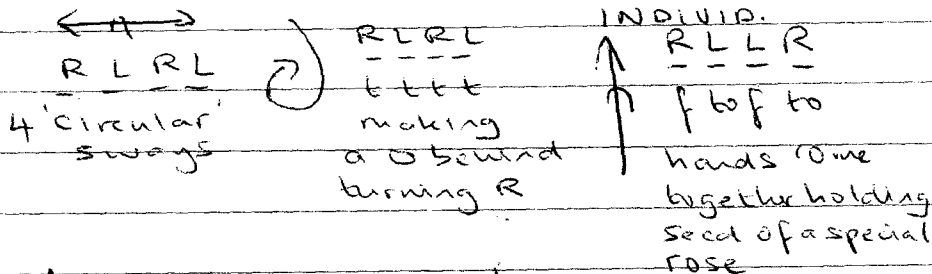 R L R L
4 'circular'
sways
R L R L
t t t t
making
a O behind
turning R
INDIVID.
R L L R
f to f to
hands come
together holding
seed of a special
rose